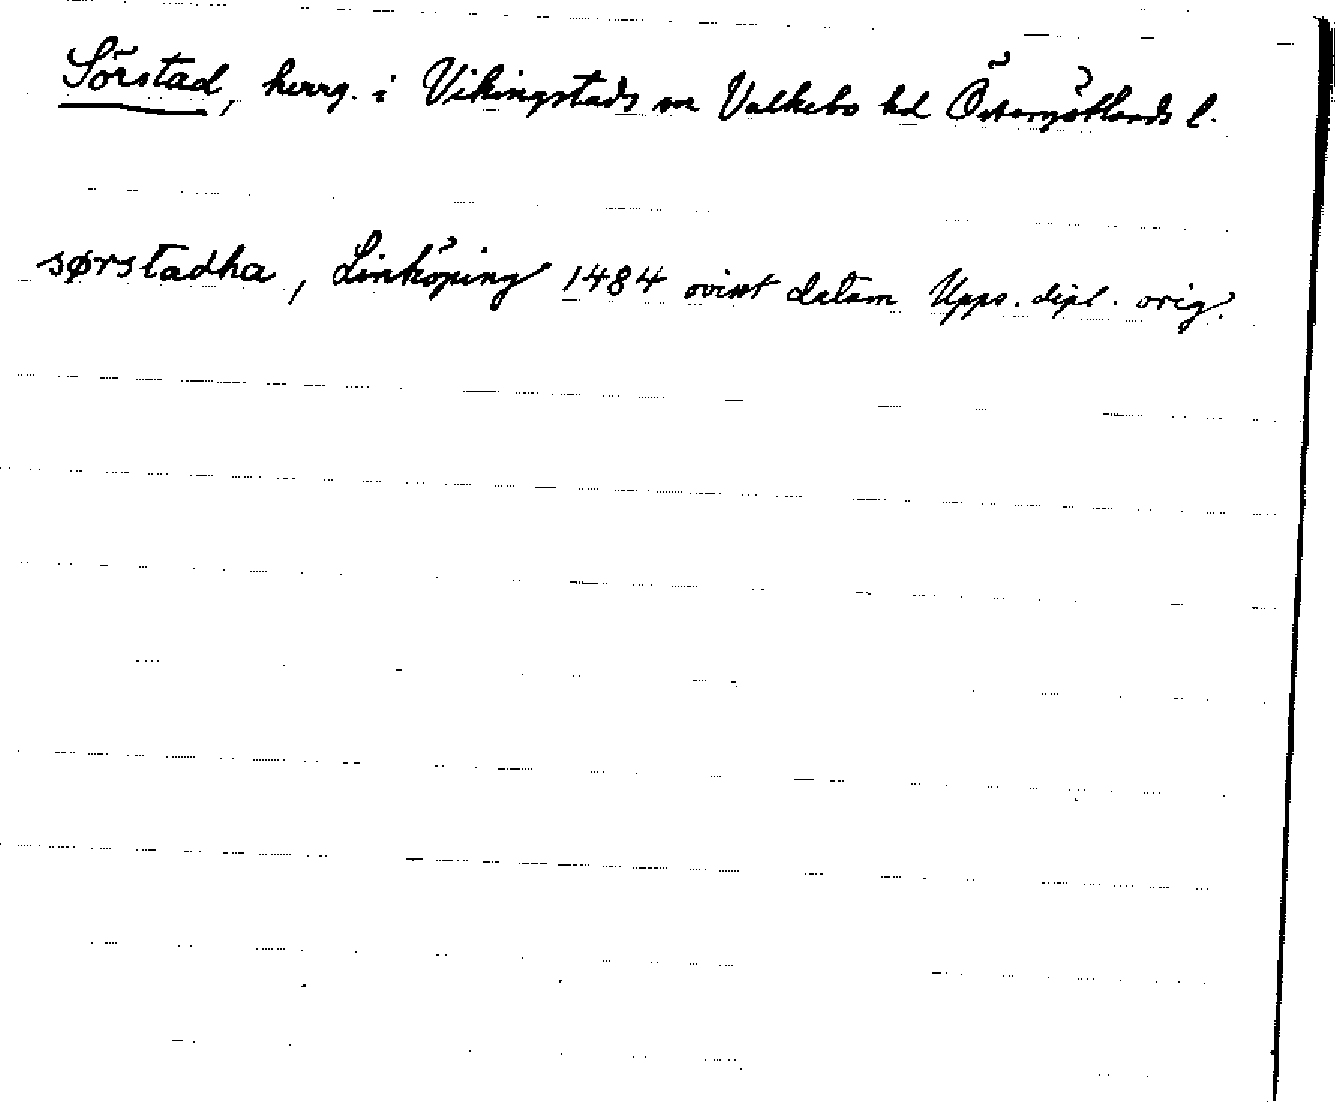 Sörstad, herrg. i Vikingstads sn Valkebo hd Östergötlands l.
sørstadha, Linköping 1484 ovisst datum Upps. dipl. orig.